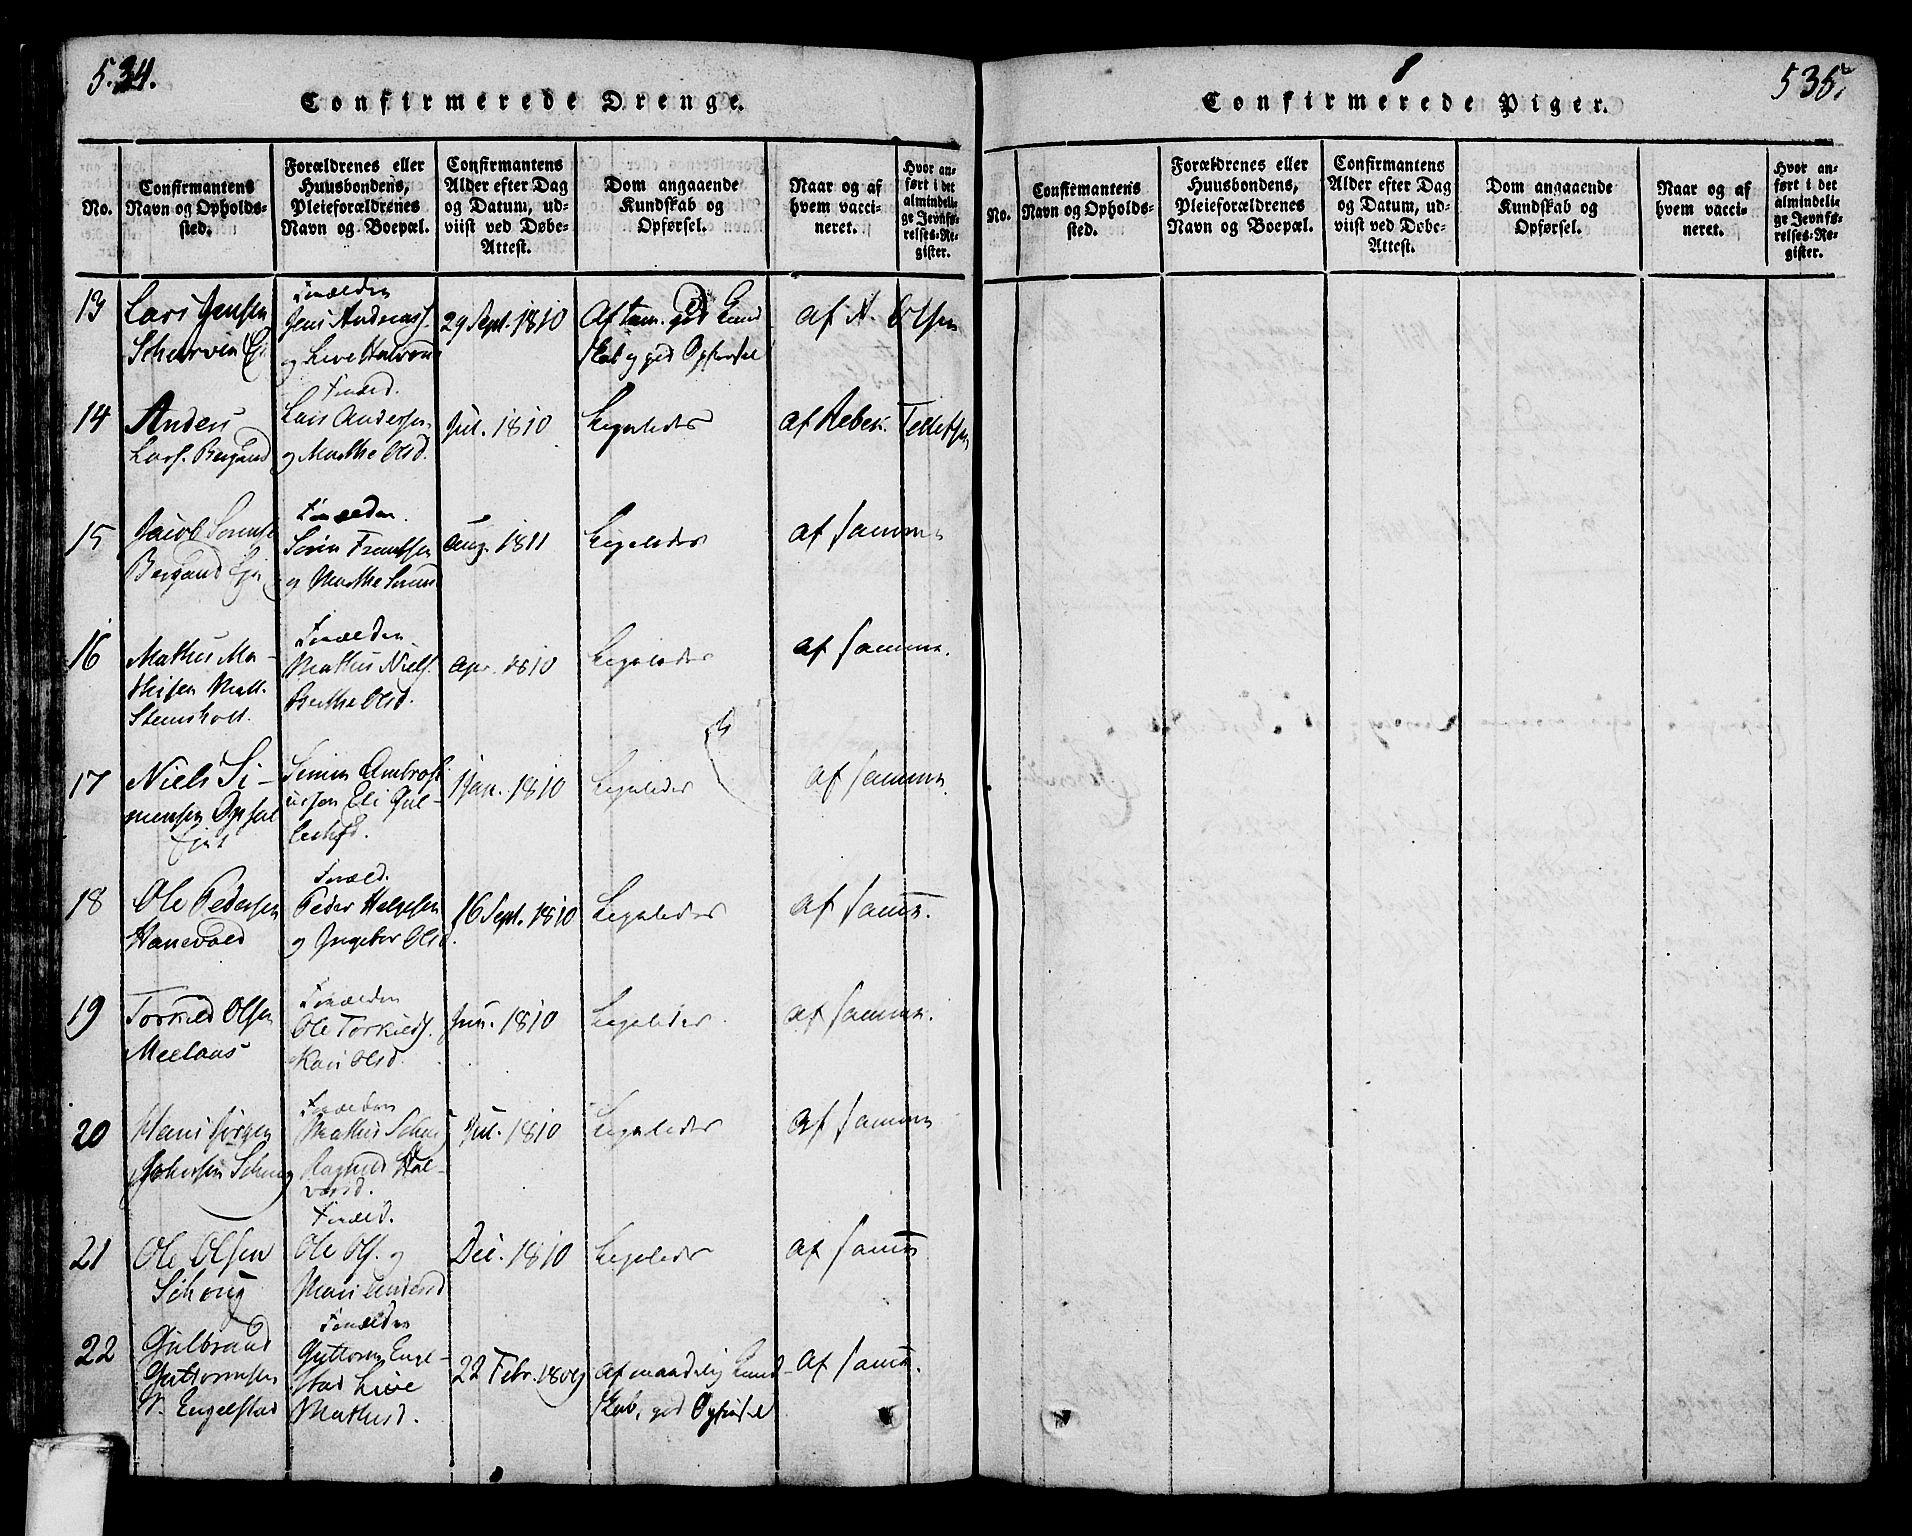 534.
Confirmerede Drenge.
No.
Confirmantens
Navn og Opholds-
sted.
Forældrenes eller
Huusbondens,
Pleieforældrenes
Navn og Boepæl.
Confirmantens
Alder efter Dag
og Datum, ud-
viist ved Døbe-
Attest.
Dom angaaende
Kundskab og
Opførsel.
Naar og af
hvem vacci-
neret.
Hvor an-
ført i det
almindeli-
ge Jevnfø-
relses-Re-
gister.
13
Lars Jensen
Forældre
Jens Andreass.
og Live Halvorsd
29 Sept. 1810
Af tem. god Kund
skab og god Opførsel
af A. Olsen
14
Anders
Lars. Bergsund
Foræld.
Lars Andersen
og Marthe Olsd.
Jul. 1810
Ligeledes
af Reber. Tellefsen
15
Jacob Sørense
Bergsund Eje
Forældre
Søren Frantsen
og Marthe
Aug. 1811
Ligeledes
af samme
16
Mathis Ma-
thisen
Forældre
Mathis Niels.
Berthe Olsd.
Apr. 1810
Ligeledes
af samme.
17
Niels Si-
mensen Opsal
Ejet
Simen Ambrosi
ussen Eli Gul-
Jan. 1810
Ligeledes
af samme
18
Ole Pedersen
Hanevold
Foræld.
Peder Helgesen
og Ingebor Olsd.
16 Sept. 1810
Ligeledes
af samm.
19
Torkild Olsen
Meelaas
Forældre
Ole Torkilds.
Kari Olsd.
Jun. 1810
Ligeledes
af samme.
20
Hans Jørgen
Schoug
Forældre
Mathis Schoug
Ragnild Hal-
vorsd.
Jul. 1810
Ligeledes
af samme
21
Ole Olsen
Schoug
Foræld.
Ole Ols. og
Mari Andersd
Dec. 1810
Ligeledes
af samm
22
Gulbrand
Guttormsen
V. Engelstad
Forældre
Guttorm Engel-
stad Live
Mathisd.
22 Febr. 1809
af maadelig Kund-
skab, god Opførsel
af samm.
535.
Confirmerede Piger.
No.
Confirmantens
Navn og Opholds-
sted.
Forældrenes eller
Huusbondens,
Pleieforældrenes
Navn og Boepæl.
Confirmantens
Alder efter Dag
og Datum, ud-
viist ved Døbe-
Attest.
Dom angaaende
Kundskab og
Opførsel.
Naar og af
hvem vacci-
neret.
Hvor an-
ført i det
almindeli-
ge Jevnfø-
relses-Re-
gister.